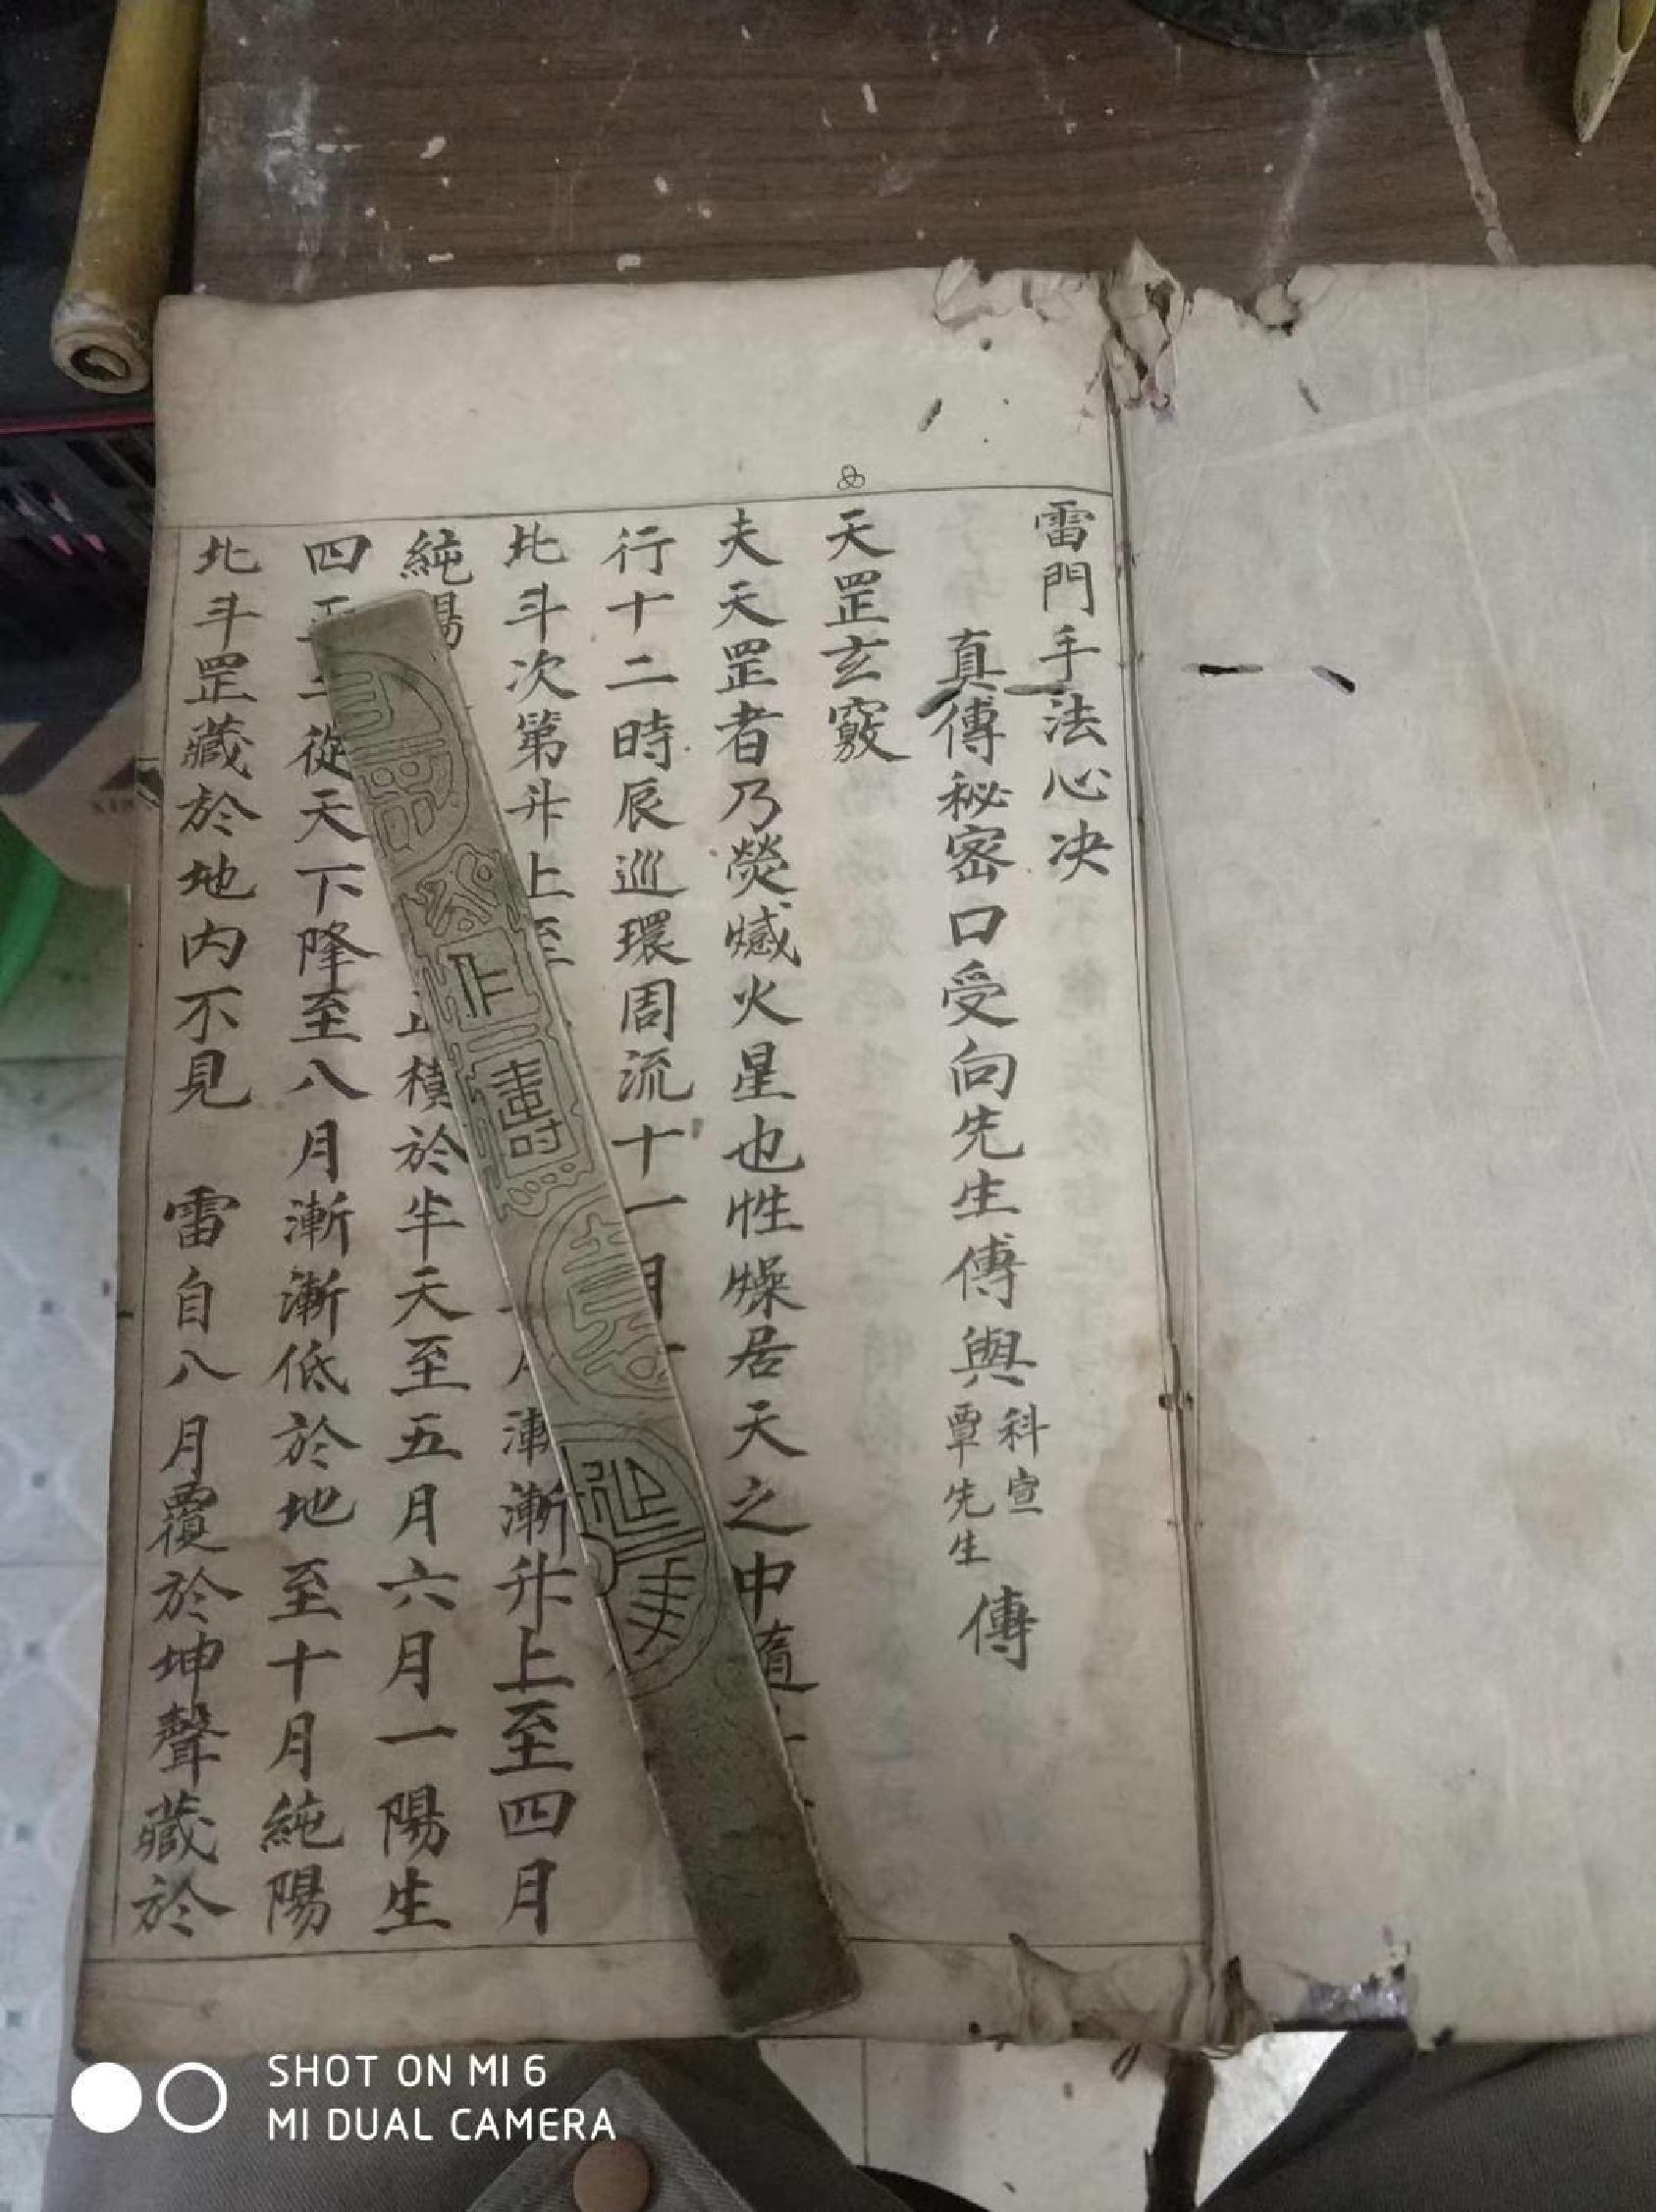 雷門手法心决
真傅秘密口受向先生傅與科宣覃先生傅
天罡玄竅
夫天罡者乃熒惑火星也性燥居天之中
行十二時辰巡環周流十一月
北斗次第升上至 漸漸升上至四月
純陽 於半天至五月六月一陽生
四 從天下降至八月漸漸低於地至十月純陽
北斗罡藏於地内不見 雷自八月覆於坤聲藏於
SHOT ON MI 6
MI DUAL CAMERA